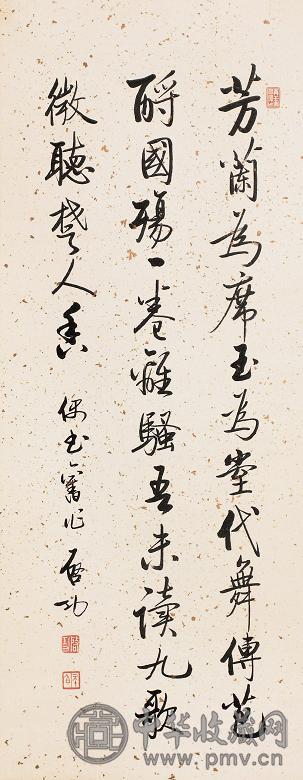 芳蘭為席玉為堂代舞傳芭
酹國殤一卷離騷吾未讀九歌
微聽楚人香 偶書舊作 啟功
中华收藏网
www.pmv.cn